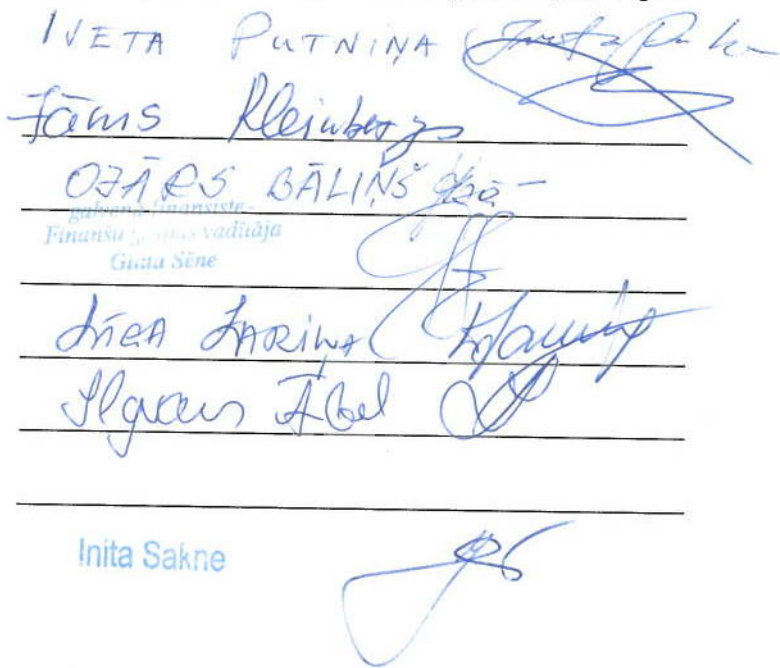 IVETA PUTNIŅA
Jānis Kleinbergs
OJĀRS BĀLIŅŠ
galvenā finansiste -
Finanšu vadītāja
Ginta Sēne
LĪGA ZARIŅA
Ilgvars Ābel
Inita Sakne